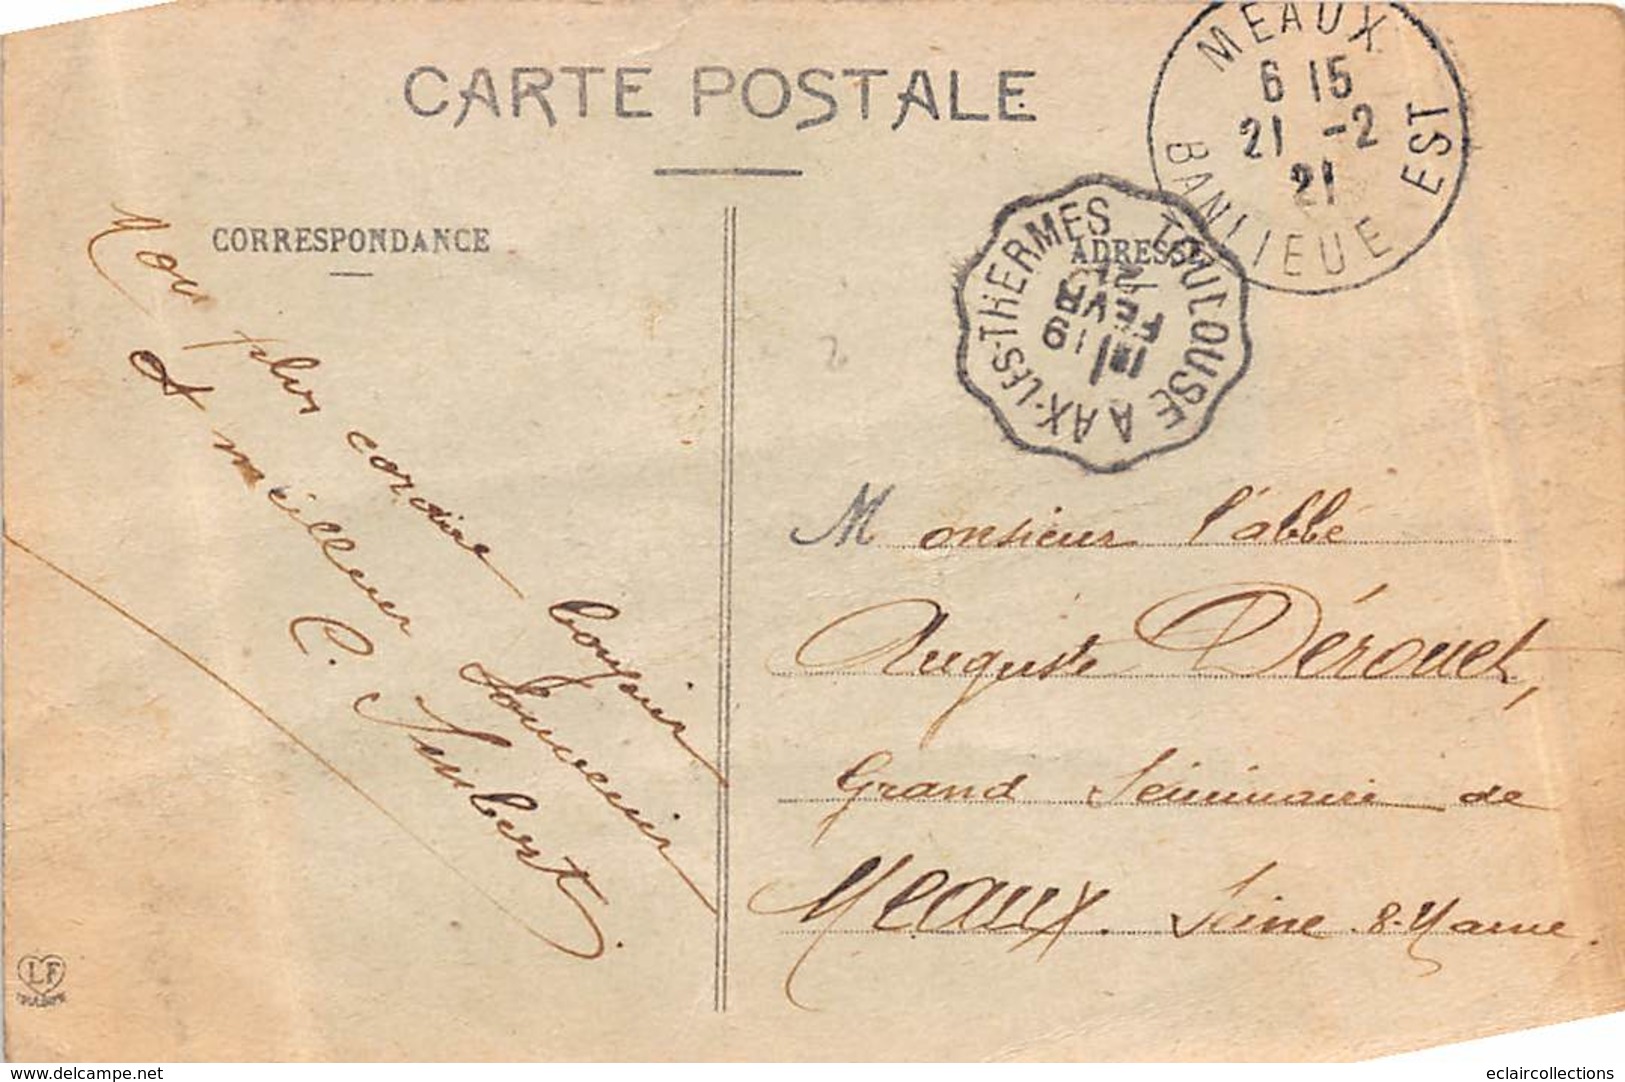 CARTE POSTALE
MEAUX
6 15
21 -2
21
BANLIEUE EST
CORRESPONDANCE
ADRESSE
TOULOUSE A AX-LES-THERMES
19
FEVR
Mon plus cordial bonjour
& meilleur Souvenir
C. Jimbert.
Monsieur l'abbé
Auguste Dérouet,
Grand Séminaire de
Meaux. Seine-&-Marne.
LF
TOULOUSE
www.delcampe.net
eclaircollections